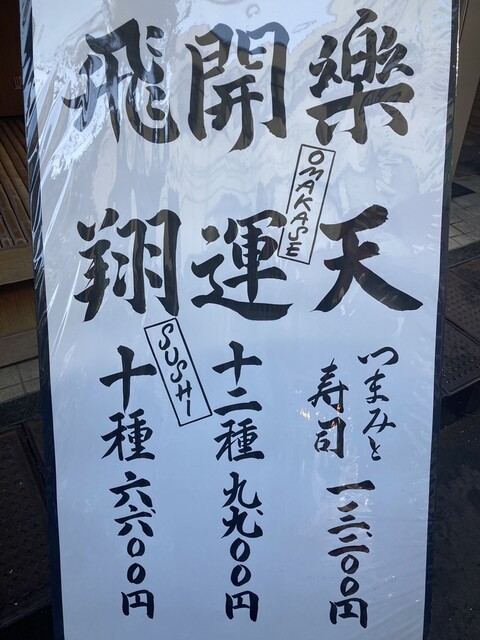 樂天
つまみと
寿司
一三、二〇〇円
OMAKASE
開運
十二種
九、九〇〇円
SUSHI
飛翔
十種
六、六〇〇円